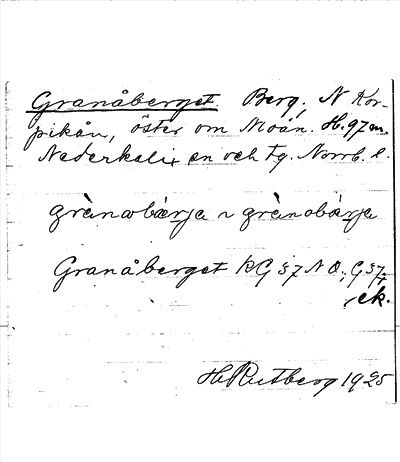 Granåberget. Berg, N Kor-
pikån, öster om Moån. H. 97 m.
Nederkalix sn och tg. Norrb. l.
grànabærja ~ grànobærja
Granåberget RG 57 N Ö; G 57,
ek.
H Rutberg 1925